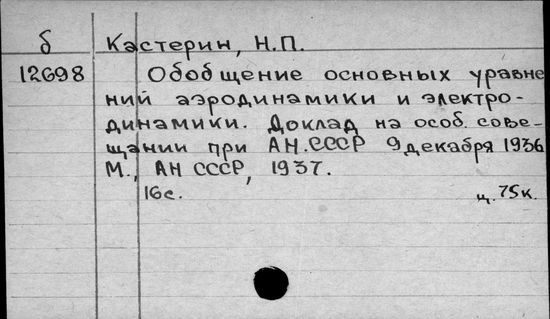 б Кастерин, Н.П.
12698 Обобщение основных уравне
ний аэродинамики и электро-
динамики. Доклад на особ. сове-
щании при АН.СССР 9 декабря 1936
М., АН СССР, 1937.
16с. ц. 75к.